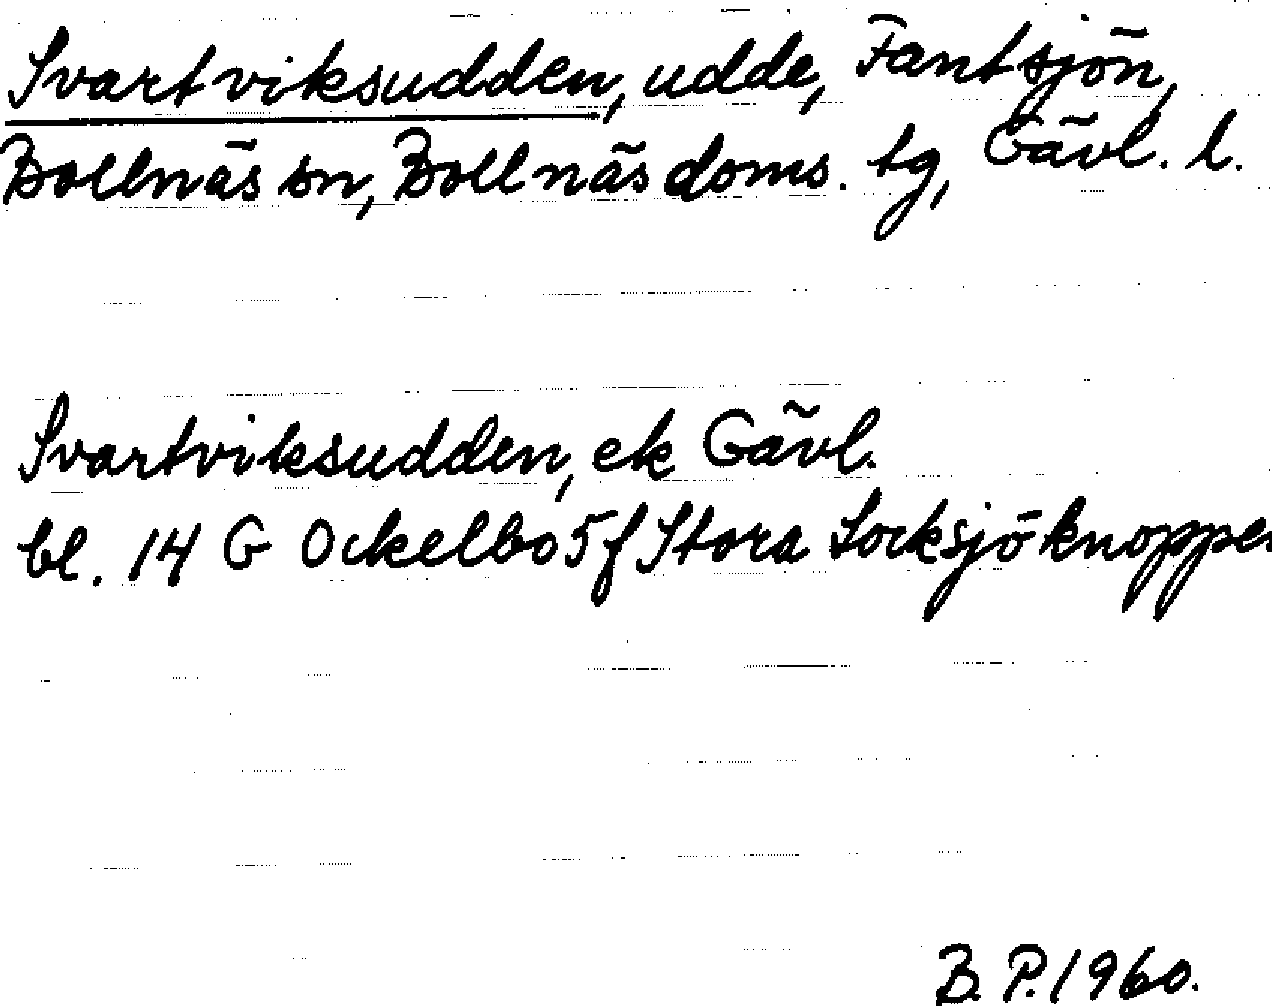 Svartviksudden, udde, Fantsjön,
Bollnäs sn, Bollnäs doms. tg, Gävl. l.
Svartviksudden, ek Gävl.
bl. 14 G Ockelbo 5 f Stora Locksjöknoppen
B. P. 1960.